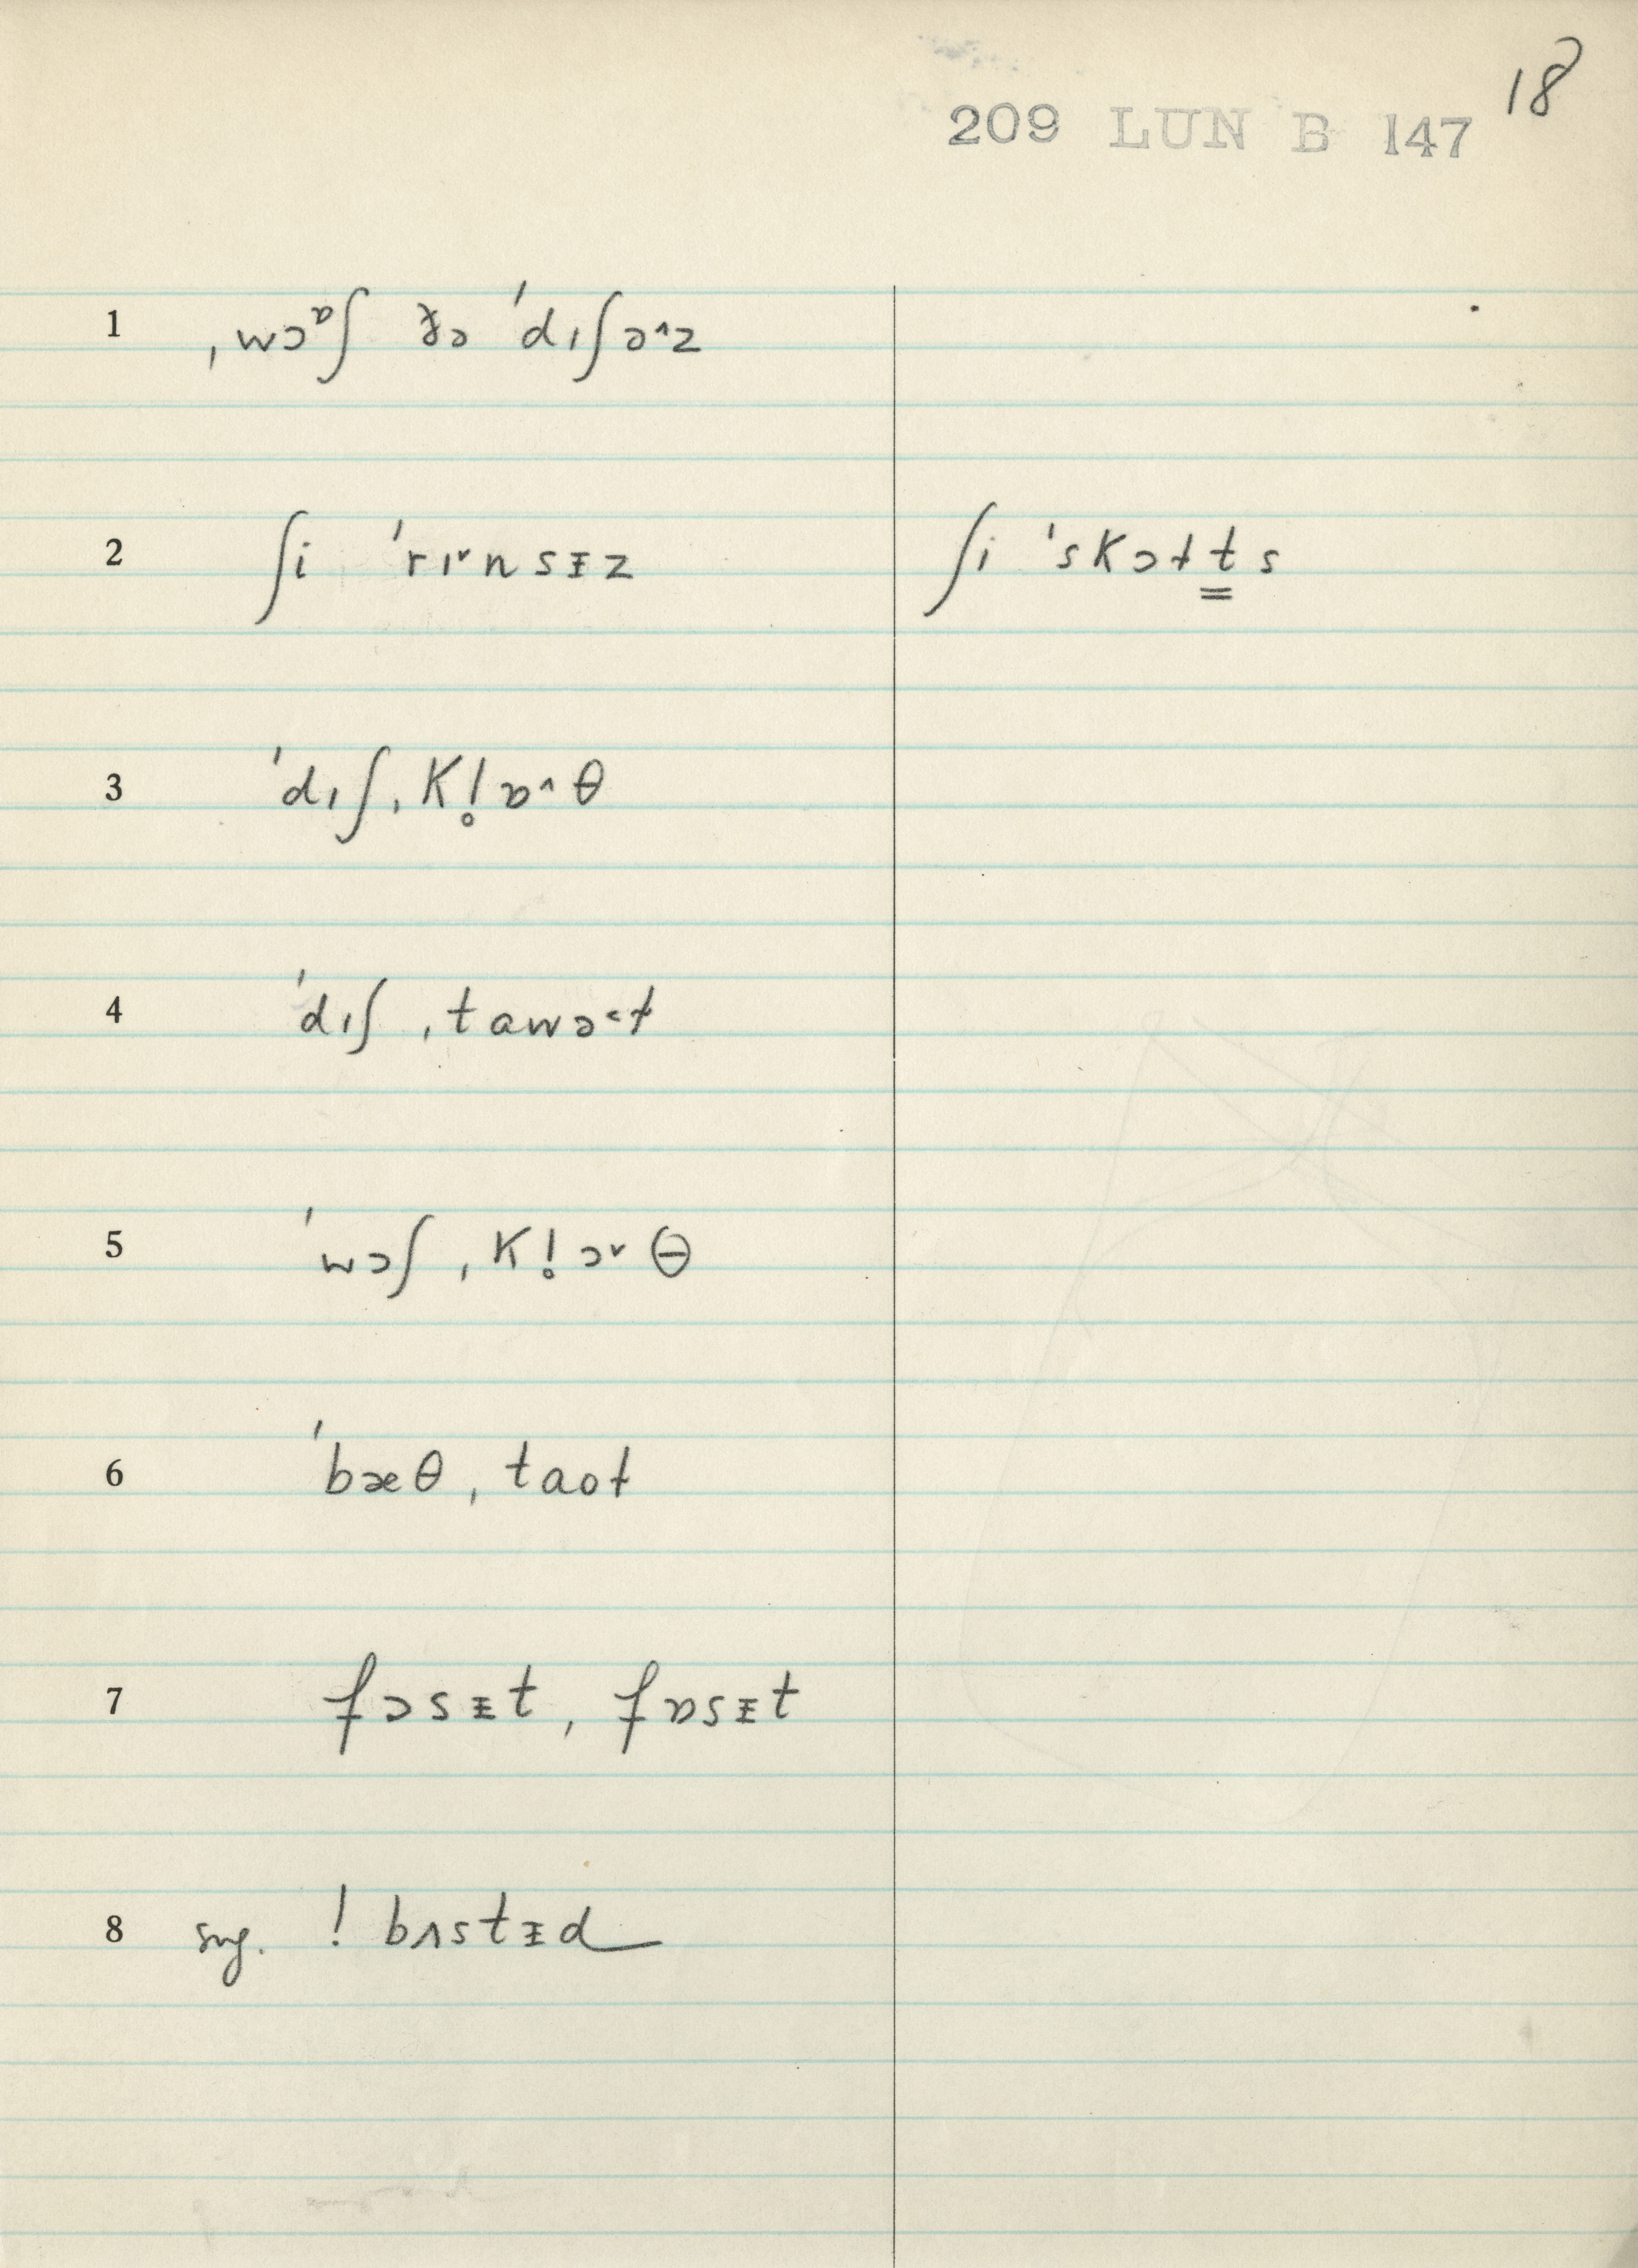 18
209 LUN B 147
1 ˌwɔᶛʃ ðə ˈdɪʃə^z
2 ʃi ˈrɪ˅nsᵻz ʃi ˈskɔɫt̳s
3 ˈdɪʃˌkl̥ɒ^θ
4 ˈdɪʃ ˌtawə˂ɫ
5 ˈwɔʃ ˌkl̥ɔ˅θ
6 ˈbæθ ˌtaoɫ
7 fɔsᵻt, fɒsᵻt
8 sug. ! bʌstᵻd